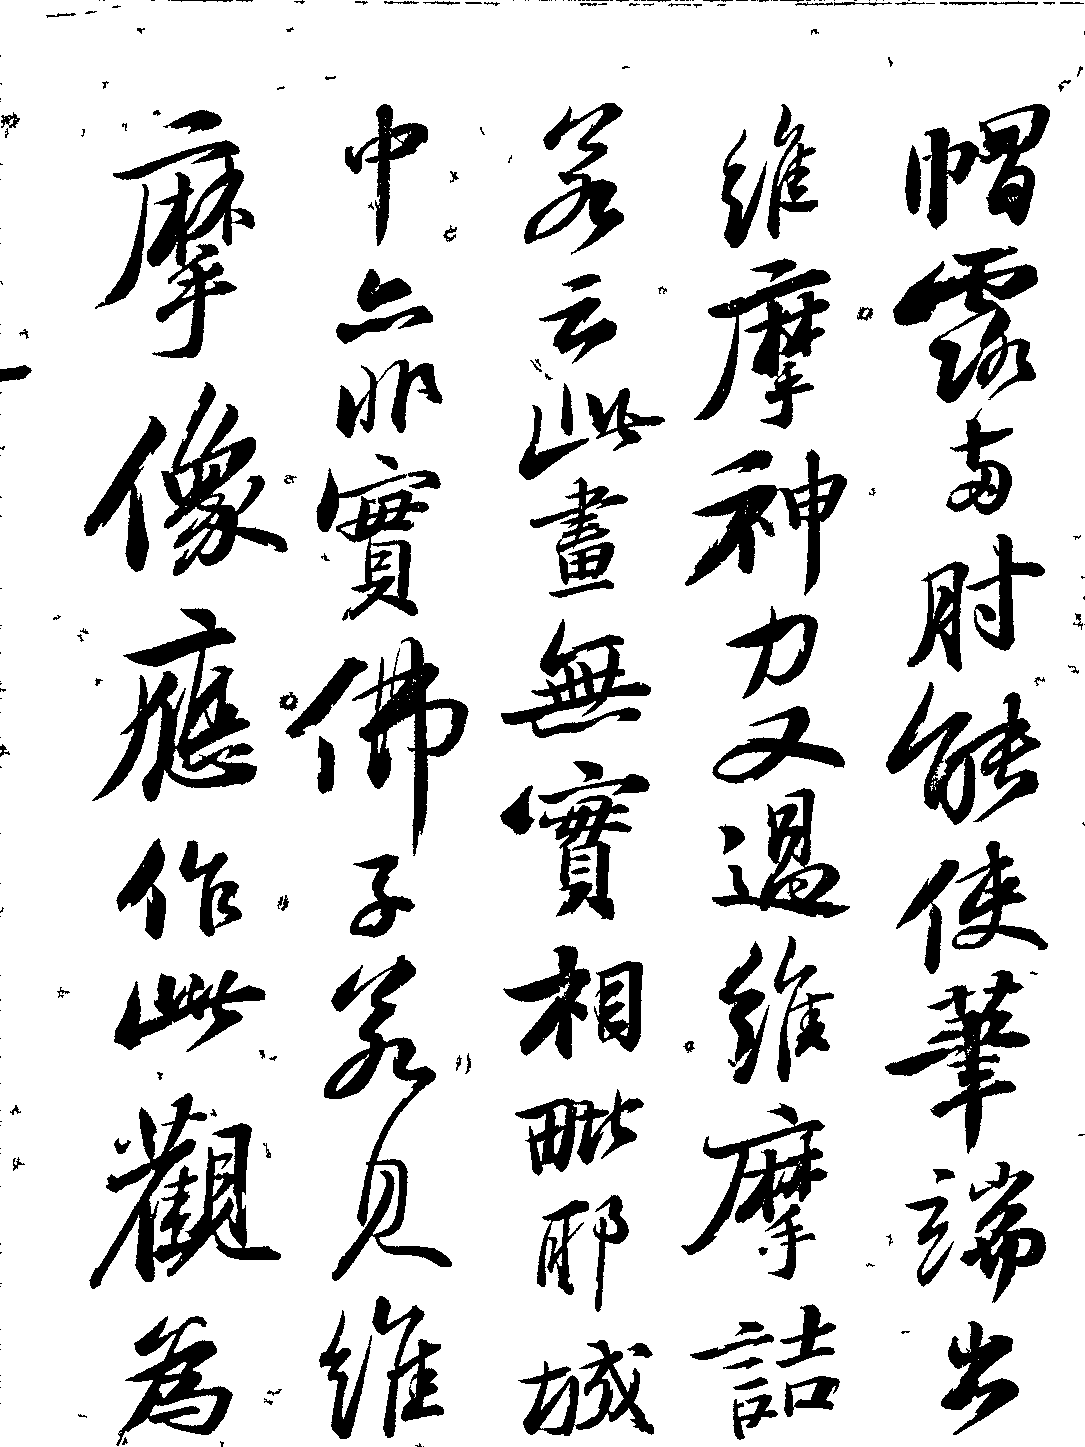 帽露両肘能使筆端出
維摩神力又過維摩詰
若云此畫無實相毗耶城
中亦非實佛子若見維
摩像應作此觀為